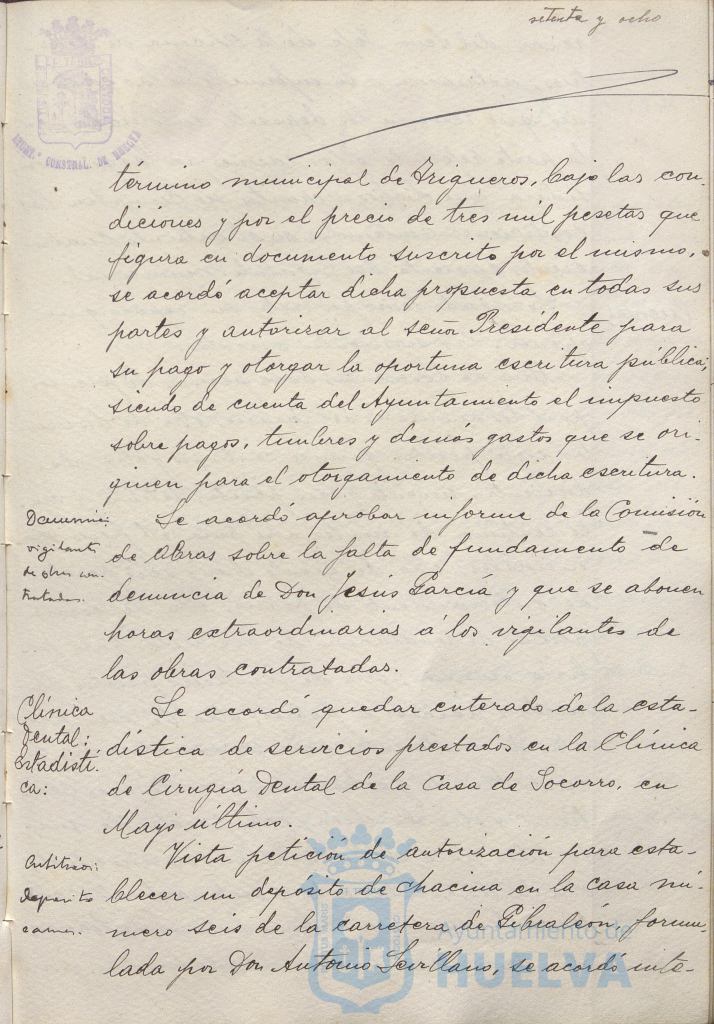 setenta y ocho
AYUNT.º CONSTNAL. DE HUELVA
término municipal de Trigueros, bajo las con-
diciones y por el precio de tres mil pesetas que
figura en documento suscrito por el mismo,
se acordó aceptar dicha propuesta en todas sus
partes y autorizar al señor Presidente para
su pago y otorgar la oportuna escritura pública;
siendo de cuenta del Ayuntamiento el impuesto
sobre pagos, timbres y demás gastos que se ori-
ginen para el otorgamiento de dicha escritura.
Denuncia:
vigilantes
de obras con-
tratadas.
Se acordó aprobar informe de la Comisión
de Obras sobre la falta de fundamento de
denuncia de Don Jesús García y que se abonen
horas extraordinarias á los vigilantes de
las obras contratadas.
Clínica
Dental:
Estadísti-
ca:
Se acordó quedar enterado de la esta-
dística de servicios prestados en la Clínica
de Cirugía Dental de la Casa de Socorro, en
Mayo último.
depósito
Vista petición de autorización para esta-
blecer un depósito de chacina en la casa nú-
mero seis de la carretera de Gibraleón, formu-
lada por Don Antonio Sevillano, se acordó inte-
Ayuntamiento de
HUELVA